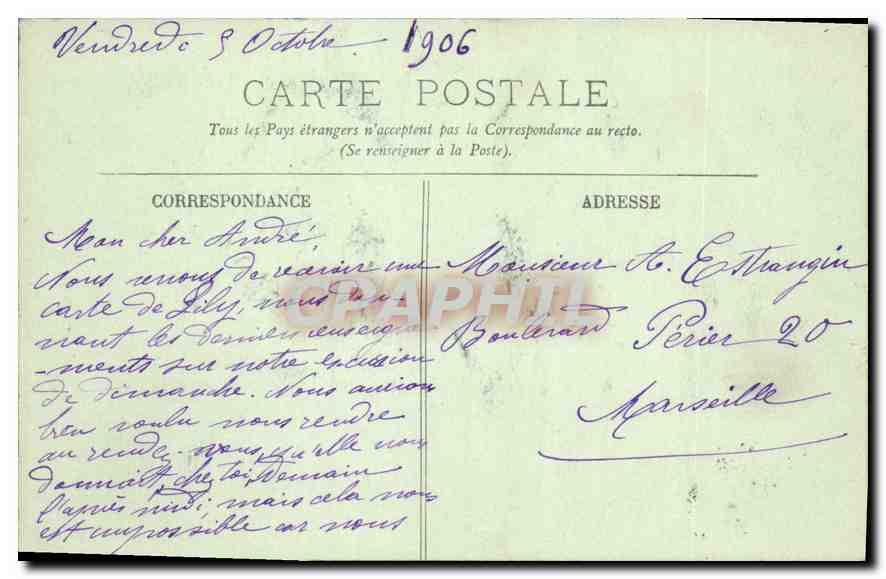 Vendredi 5 Octobre 1906
CARTE POSTALE
Tous les Pays étrangers n'acceptent pas la Correspondance au recto.
(Se renseigner à la Poste).
CORRESPONDANCE
Mon cher André,
Nous venons de recevoir une
carte de Lily, nous don-
nant les derniers enseigne
-ments sur notre excursion
de dimanche. Nous aurions
bien voulu nous rendre
au rendez-vous, qu'elle nous
donnait, chez toi, Demain
l'après midi; mais cela nous
est impossible car nous
ADRESSE
Monsieur A. Estrangin
Boulevard Périer 20
Marseille
CPAPHIL